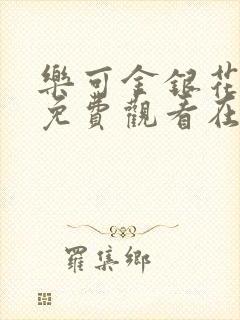 樂可金銀花
免費觀看在
羅集鄉